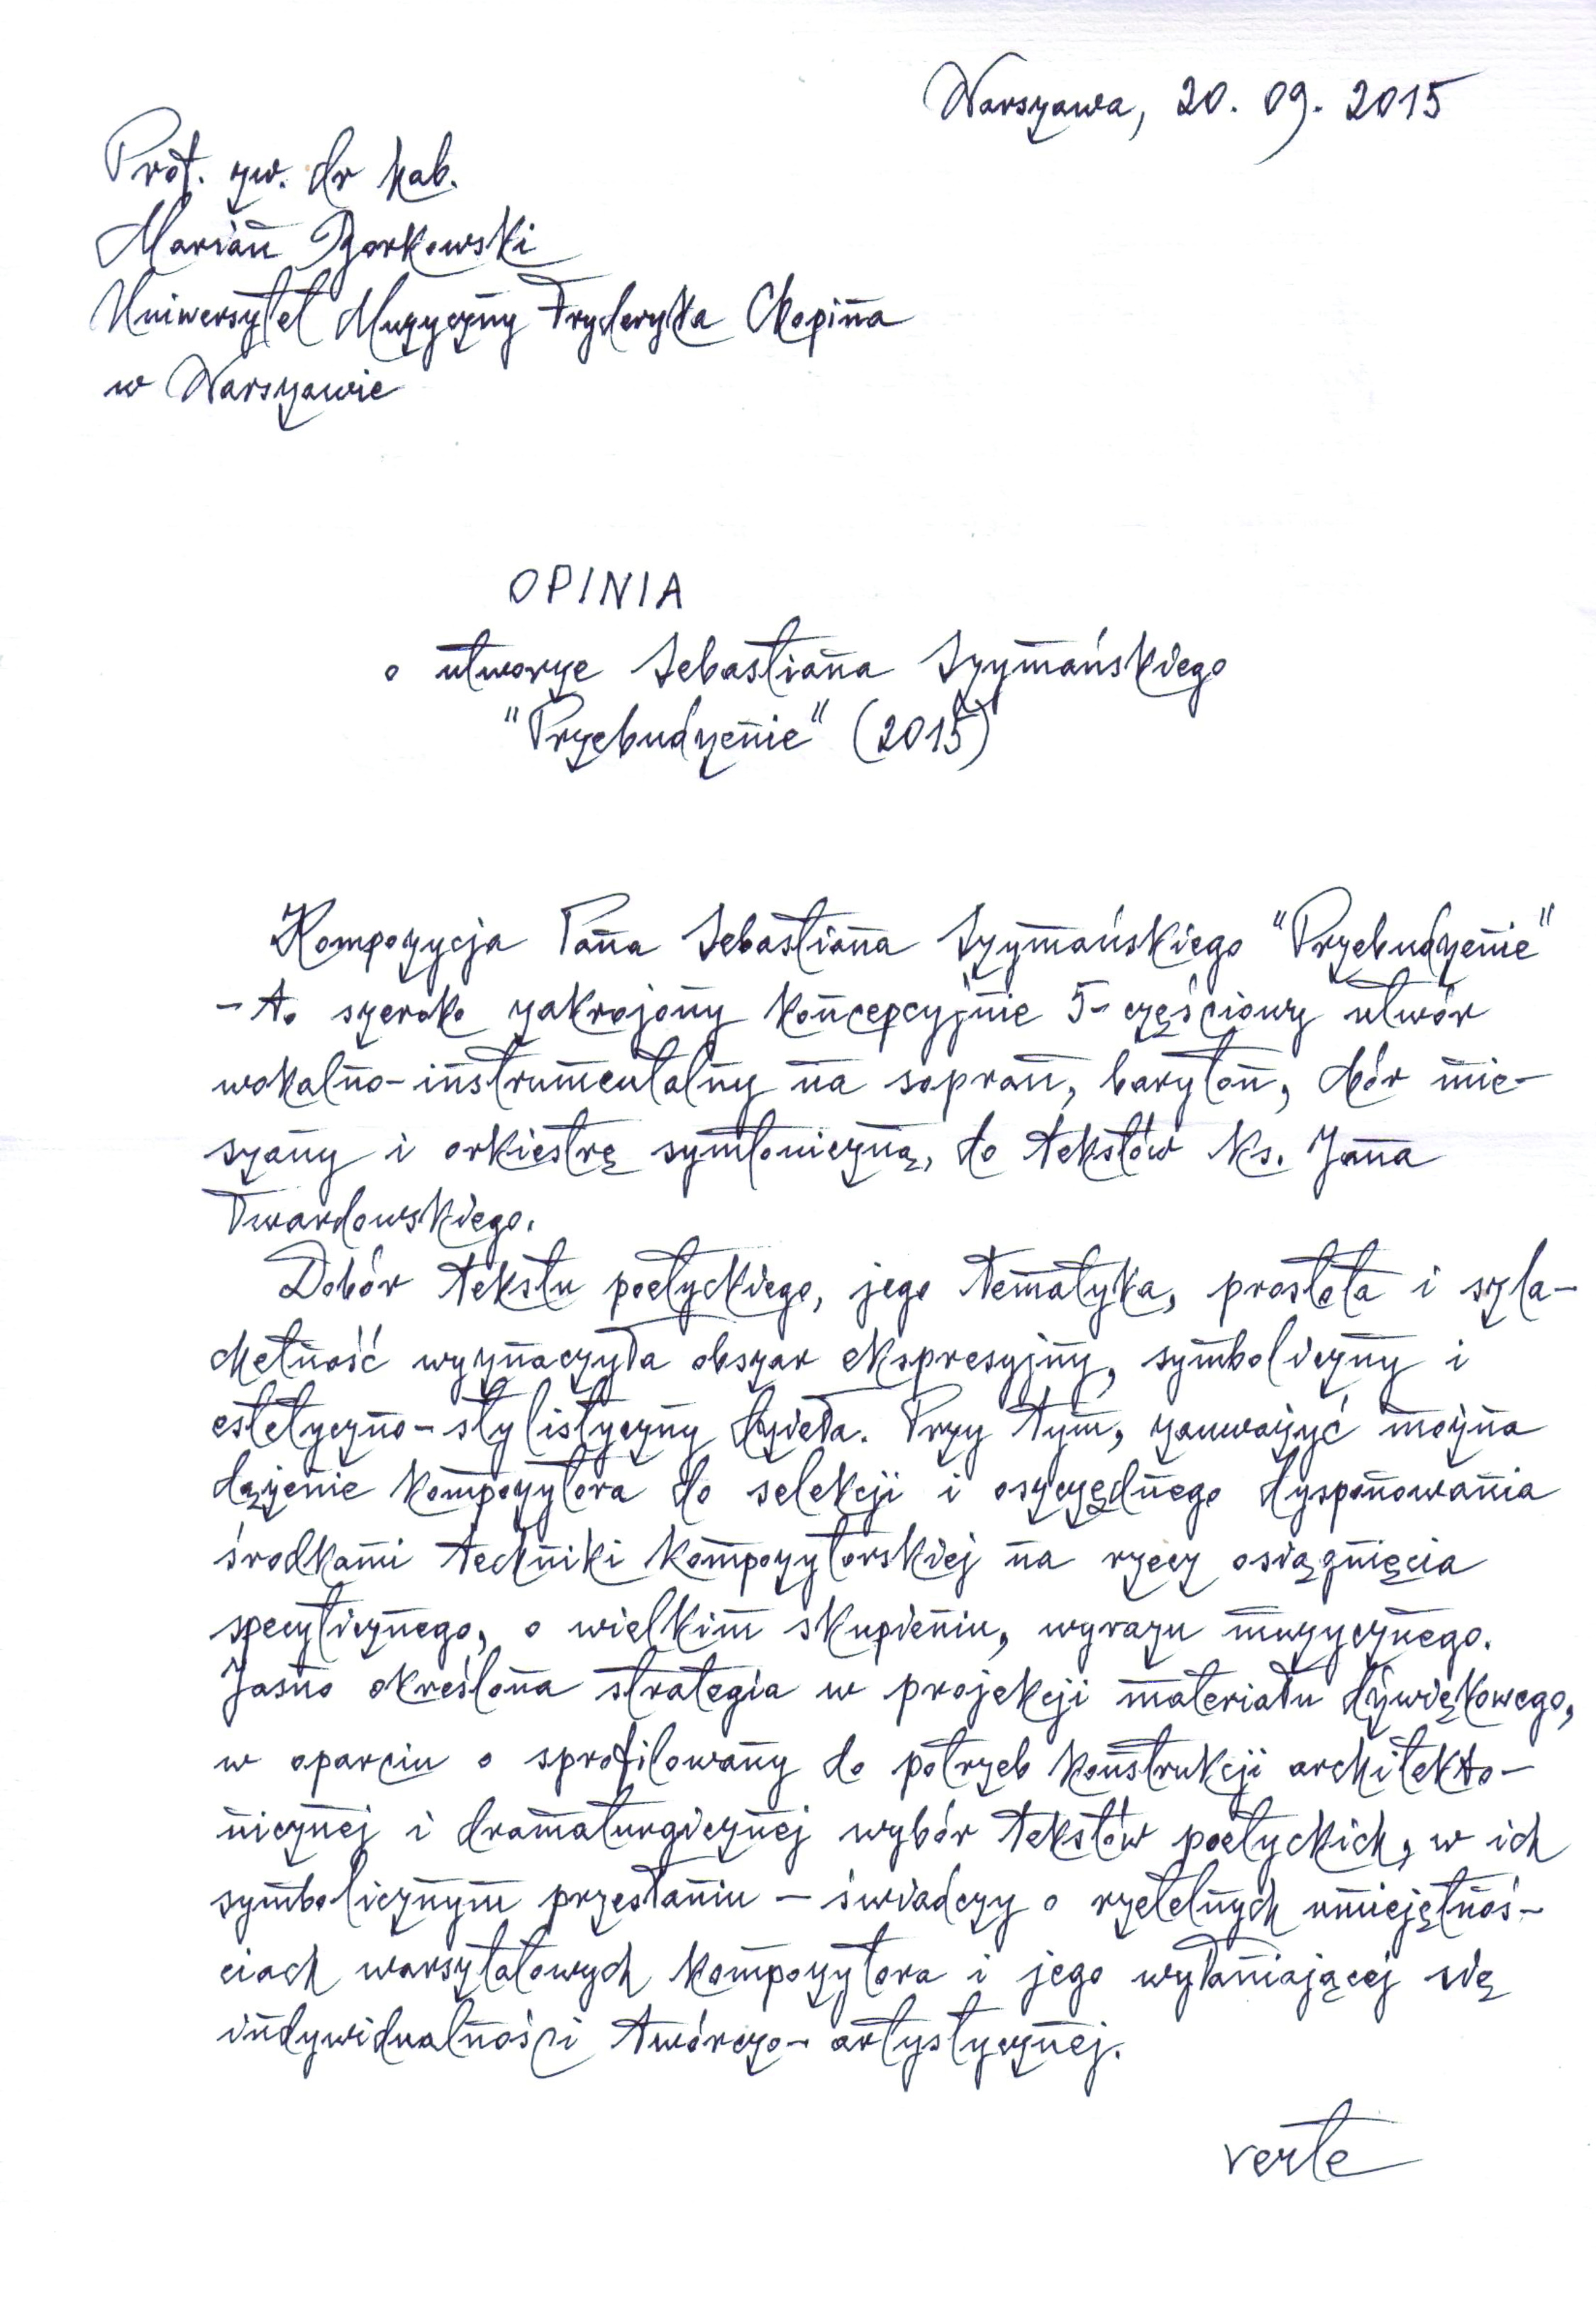 Warszawa, 20. 09. 2015
Prof. zw. dr hab.
Marian Borkowski
Uniwersytet Muzyczny Fryderyka Chopina
w Warszawie
OPINIA
o utworze Sebastiana Szymańskiego
"Przebudzenie" (2015)
Kompozycja Pana Sebastiana Szymańskiego "Przebudzenie"
- to szeroko zakrojony koncepcyjnie 5-częściowy utwór
wokalno-instrumentalny na sopran, baryton, chór mie-
szany i orkiestrę symfoniczną, do tekstów ks. Jana
Twardowskiego.
Dobór tekstu poetyckiego, jego tematyka, prostota i szla-
chetność wyznaczyła obszar ekspresyjny, symboliczny i
estetyczno-stylistyczny dzieła. Przy tym, zauważyć można
dążenie kompozytora do selekcji i oszczędnego dysponowania
środkami techniki kompozytorskiej na rzecz osiągnięcia
specyficznego, o wielkim skupieniu, wyrazu muzycznego.
Jasno określona strategia w projekcji materiału dźwiękowego,
w oparciu o sprofilowany do potrzeb konstrukcji architekto-
nicznej i dramaturgicznej wybór tekstów poetyckich, w ich
symbolicznym przesłaniu - świadczy o rzetelnych umiejętnoś-
ciach warsztatowych kompozytora i jego wyłaniającej się
indywidualności twórczo-artystycznej.
verte